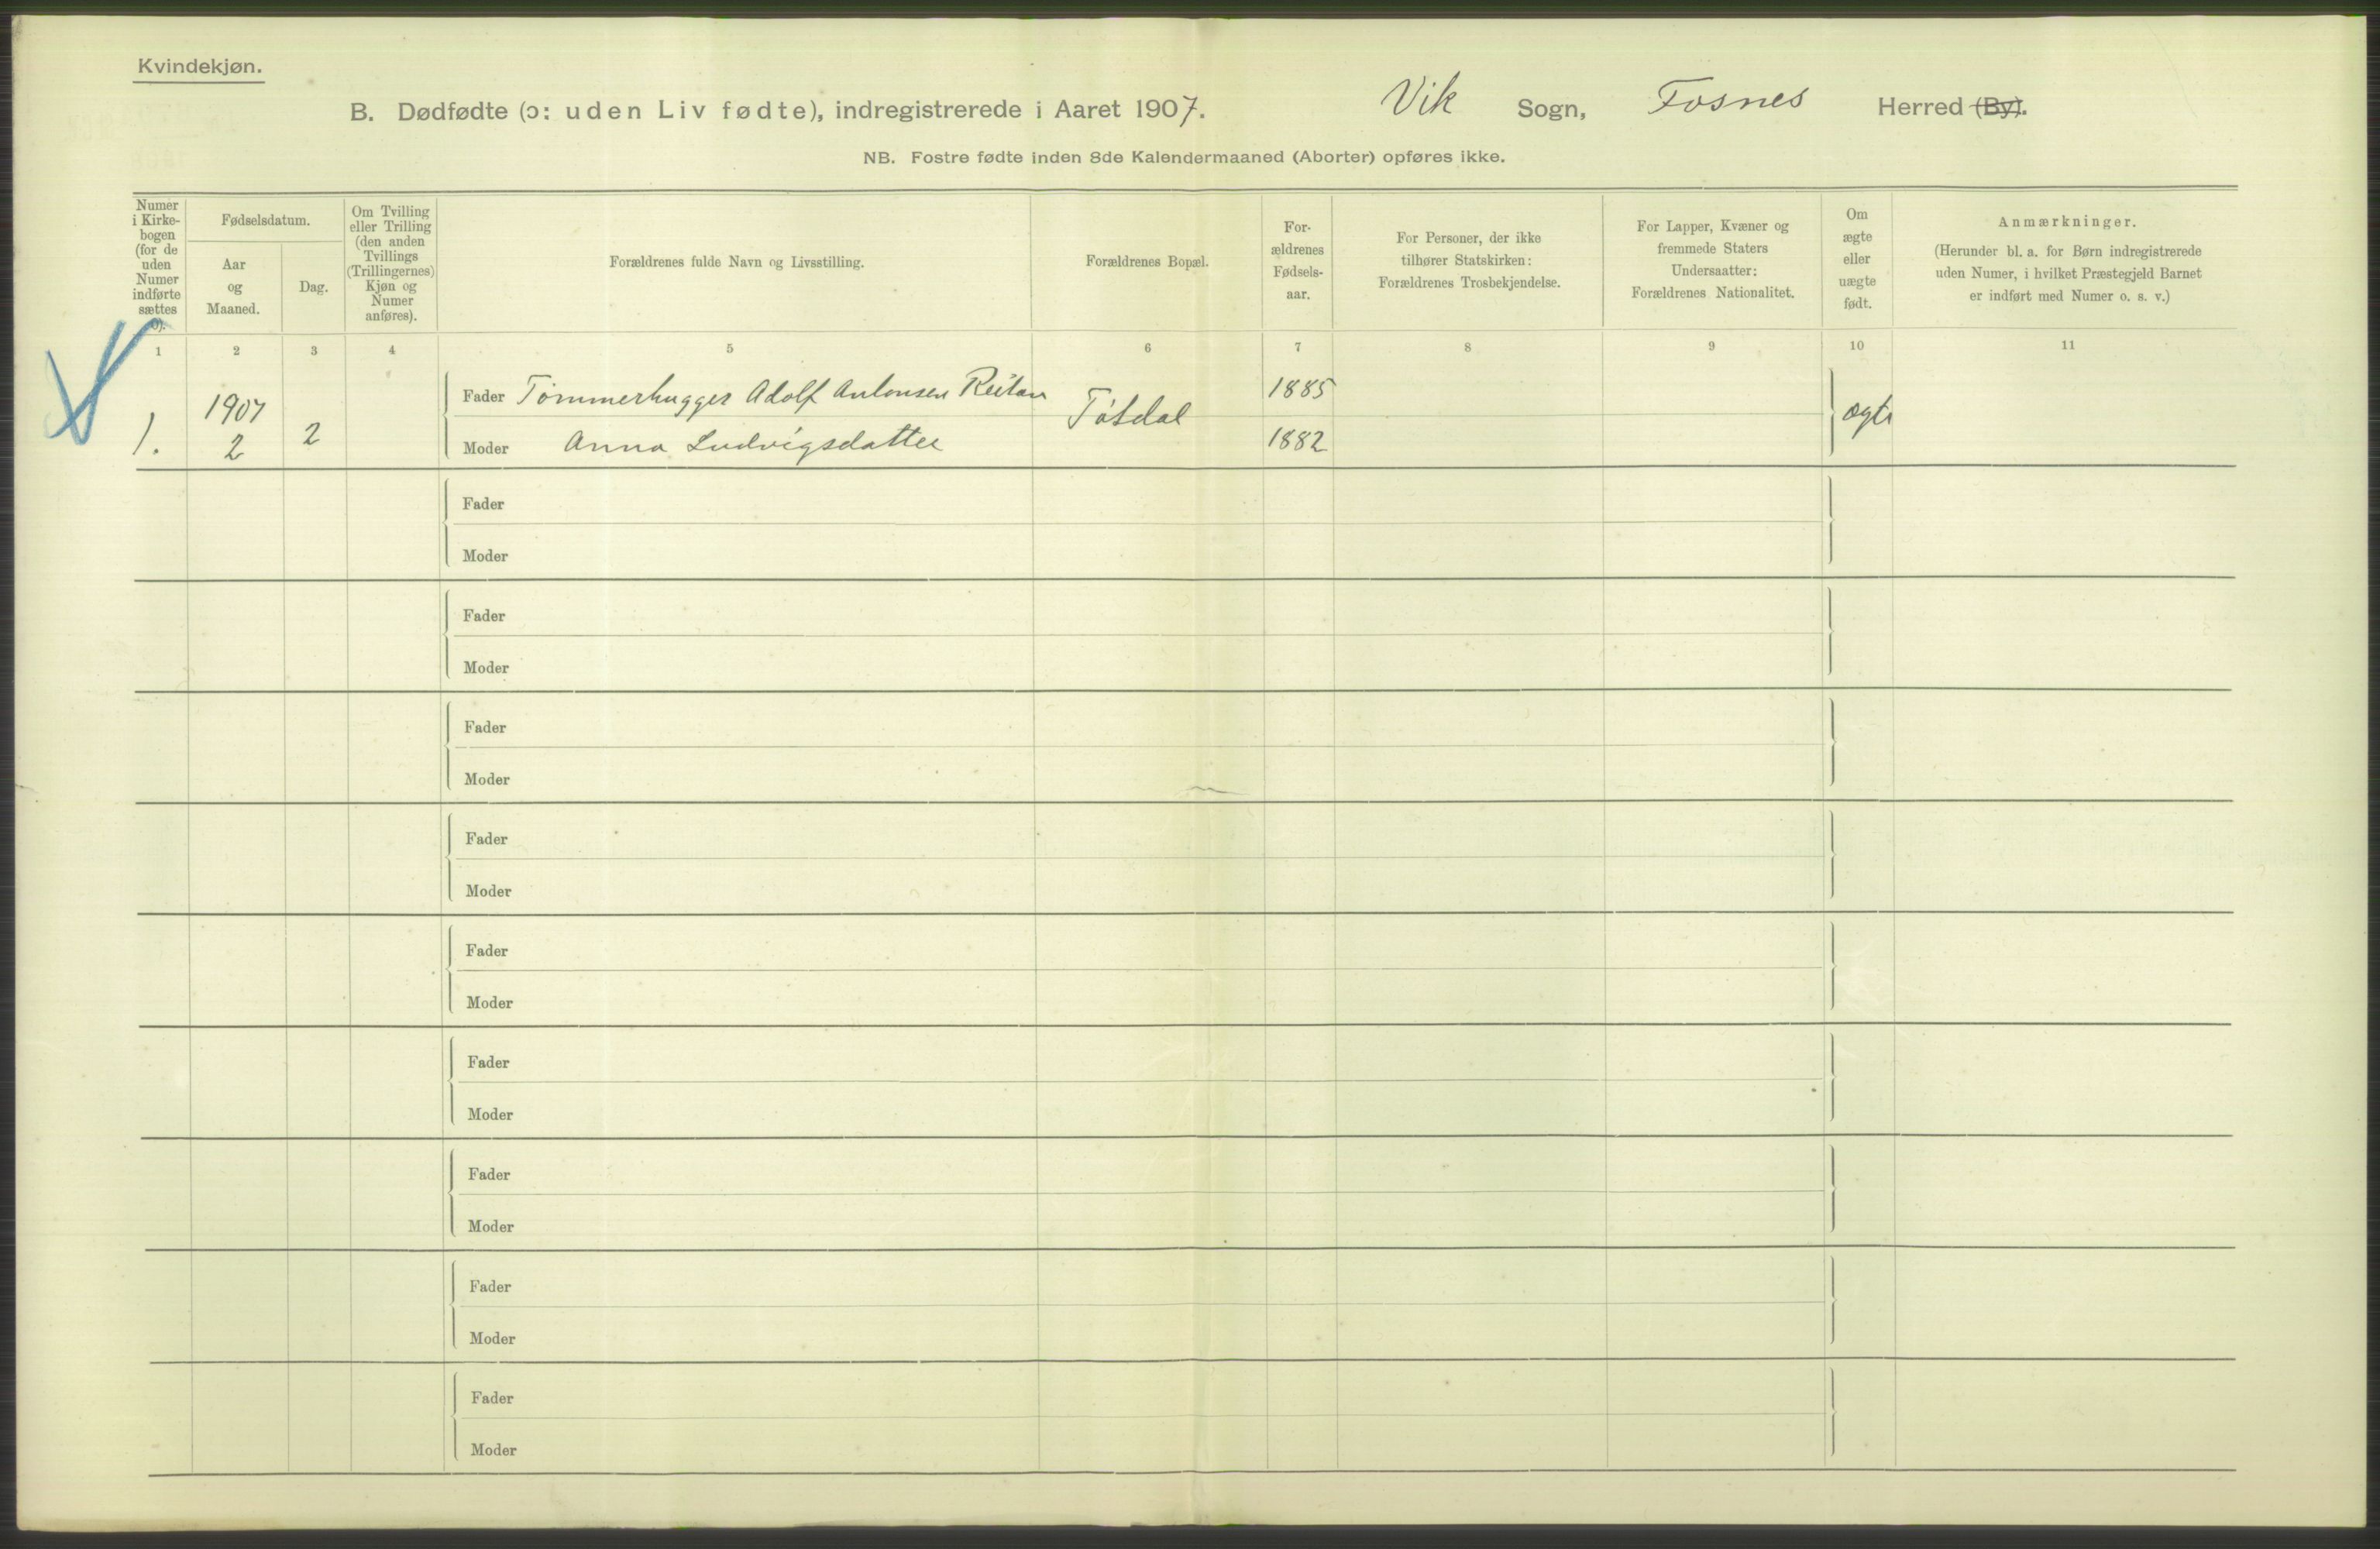 Kvindekjøn.
B. Dødfødte (ɔ: uden Liv fødte), indregistrerede i Aaret 1907. Vik Sogn, Fosnes Herred (By).
NB. Fostre fødte inden 8de Kalendermaaned (Aborter) opføres ikke.
Numer
i Kirke-
bogen
(for de
uden
Numer
indførte
sættes
0).
Fødselsdatum.
Aar
og
Maaned.
Dag.
Om Tvilling
eller Trilling
(den anden
Tvillings
(Trillingernes)
Kjøn og
Numer
anføres).
Forældrenes fulde Navn og Livsstilling.
Forældrenes Bopæl.
For-
ældrenes
Fødsels-
aar.
For Personer, der ikke
tilhører Statskirken:
Forældrenes Trosbekjendelse.
For Lapper, Kvæner og
fremmede Staters
Undersaatter:
Forældrenes Nationalitet.
Om
ægte
eller
uægte
født.
Anmærkninger.
(Herunder bl. a. for Børn indregistrerede
uden Numer, i hvilket Præstegjeld Barnet
er indført med Numer o. s. v.)
1 2 3 4 5 6 7 8 9 10 11
1. 1907 2 2
Fader Tømmerhugger Adolf Antonsen Reitan 1885
Moder Anna Ludvigsdatter 1882
ægte
Fader
Moder
Fader
Moder
Fader
Moder
Fader
Moder
Fader
Moder
Fader
Moder
Fader
Moder
Fader
Moder
Fader
Moder